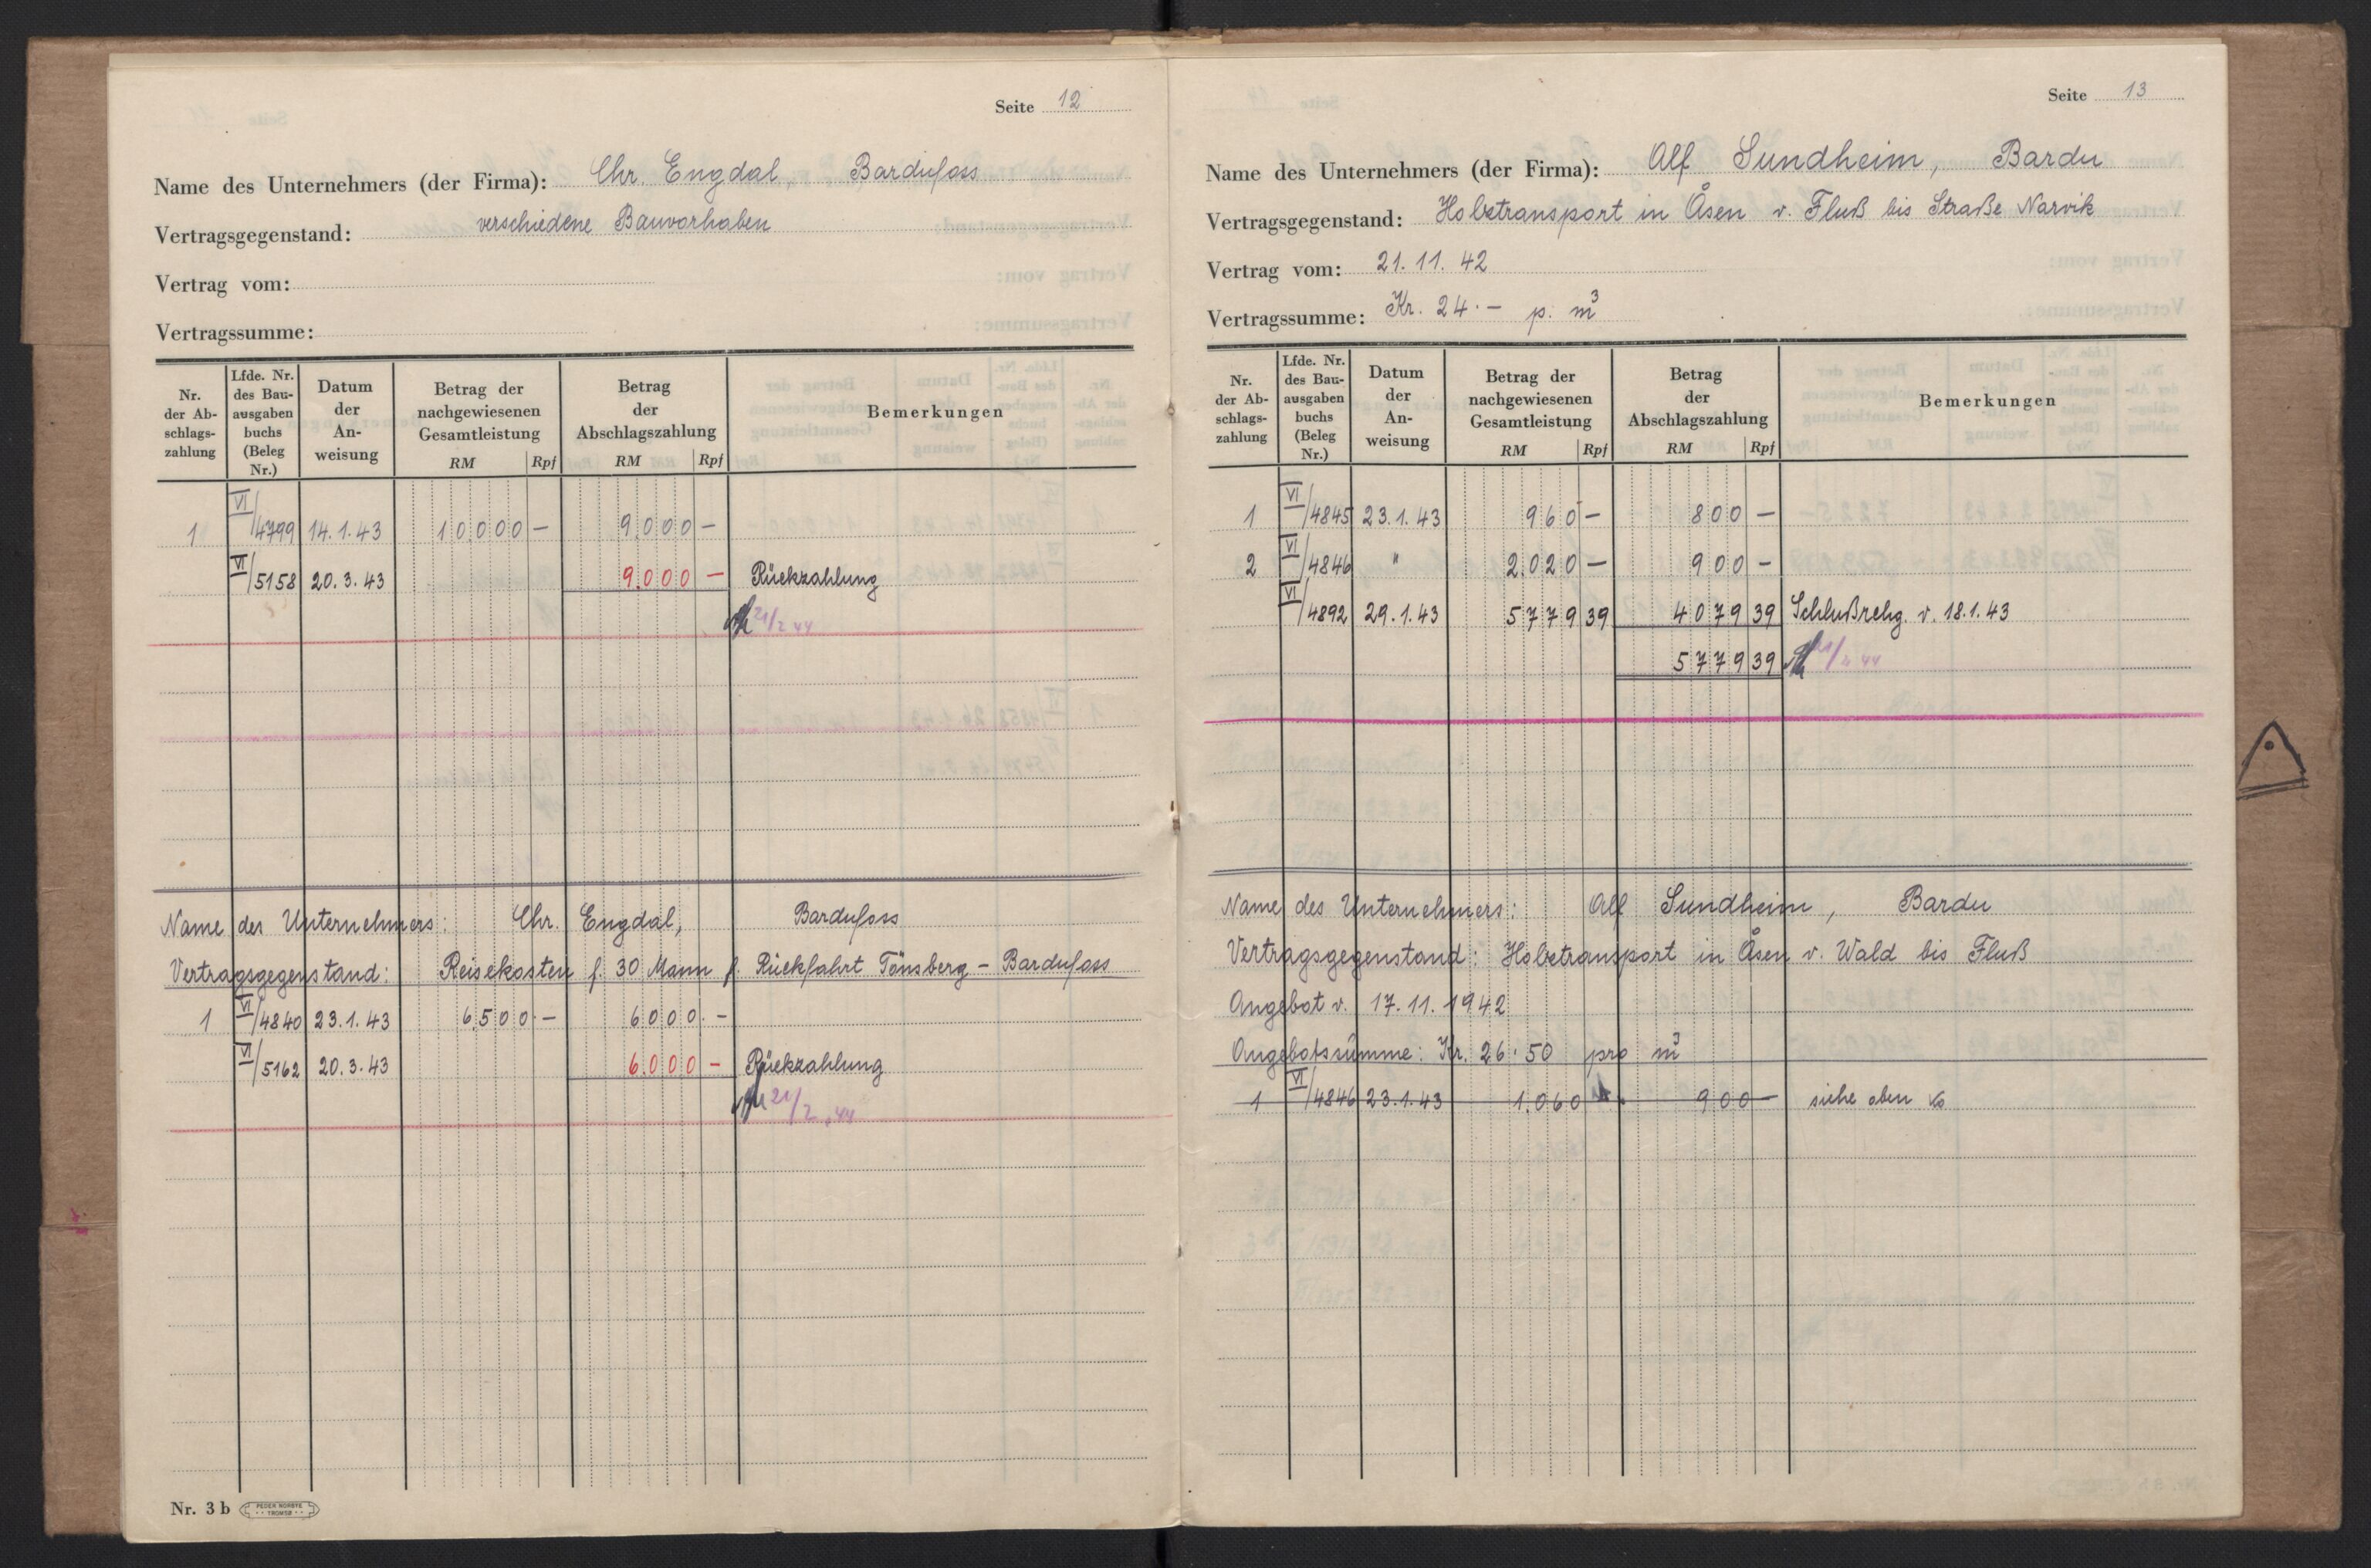 Seite 12
Name des Unternehmers (der Firma): Chr Engdal, Bardufoss
Vertragsgegenstand: verschiedene Bauvorhaben
Vertrag vom:
Vertragssumme:
Nr. der Abschlags-zahlung | Lfde. Nr. des Bau-ausgaben buchs (Beleg Nr.) | Datum der An-weisung | Betrag der nachgewiesenen Gesamtleistung RM Rpf | Betrag der Abschlagszahlung RM Rpf | Bemerkungen
1 VI/4799 14.1.43 10000 — 9.000 —
VI/5158 20.3.43 9.000 — Rückzahlung
21/2 44
Name des Unternehmers: Chr. Engdal, Bardufoss
Vertragsgegenstand: Reisekosten f. 30 Mann f. Rückfahrt Tönsberg – Bardufoss
1 VI/4840 23.1.43 6.500.— 6000.—
VI/5162 20.3.43 6.000 — Rückzahlung
21/2.44
Nr. 3b PEDER NORBYE TROMSØ
Seite 13
Name des Unternehmers (der Firma): Alf Sundheim, Bardu
Vertragsgegenstand: Holztransport in Åsen v. Fluß bis Straße Narvik
Vertrag vom: 21.11.42
Vertragssumme: Kr. 24.— p. m³
Nr. der Abschlags-zahlung | Lfde. Nr. des Bau-ausgaben buchs (Beleg Nr.) | Datum der An-weisung | Betrag der nachgewiesenen Gesamtleistung RM Rpf | Betrag der Abschlagszahlung RM Rpf | Bemerkungen
1 VI/4845 23.1.43 960 — 800 —
2 VI/4846 " 2.020 — 900 —
VI/4892 29.1.43 5779 39 4079 39 Schlußrchg. v. 18.1.43
5779 39 21/2 44
Name des Unternehmers: Alf Sundheim, Bardu
Vertragsgegenstand: Holztransport in Åsen v. Wald bis Fluß
Angebot v. 17.11.1942
Angebotssumme: Kr. 26.50 pro m³
1 VI/4846 23.1.43 1.060 900 — siehe oben